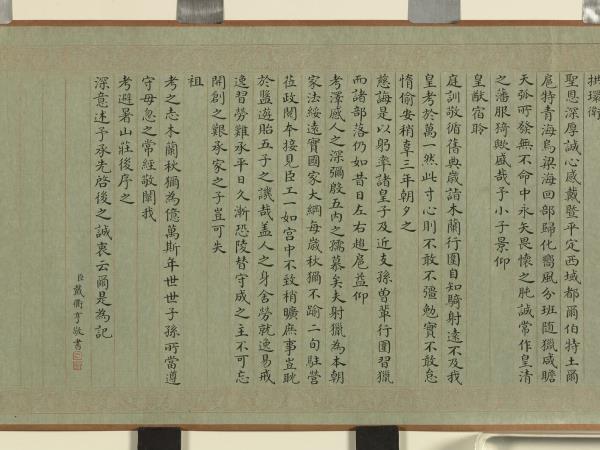 環衛
聖恩深厚誠心感戴暨平定西域都爾伯特土爾
扈特青海烏梁海回部歸化嚮風分班隨獵咸瞻
天弧所發無不命中永矢畏懷之肫誠常作皇清
之藩服猗歟盛哉予小子景仰
皇猷宿聆
庭訓敬循舊典歲詣木蘭行圍自知騎射遠不及我
皇考於萬一然此寸心則不敢不彊勉實不敢怠
惰偷安稍辜三年朝夕之
慈誨是以躬率諸皇子及近支孫曾輩行圍習獵
而諸部落仍如昔日左右趨扈益仰
考澤感人之深彌殷五內之孺慕矣夫射獵為本朝
家法綏遠實國家大綱每歲秋獮不踰二旬駐營
莅政閱本接見臣工一如宮中不致稍曠庶事豈耽
於盤遊貽五子之譏哉蓋人之身舍勞就逸易戒
逸習勞難承平日久漸恐陵替守成之主不可忘
開創之艱承家之子豈可失
祖
考之志木蘭秋獮為億萬斯年世世子孫所當遵
守毋忽之常經敬闡我
考避暑山莊後序之
深意述予承先啓後之誠衷云爾是為記
臣戴衢亨敬書